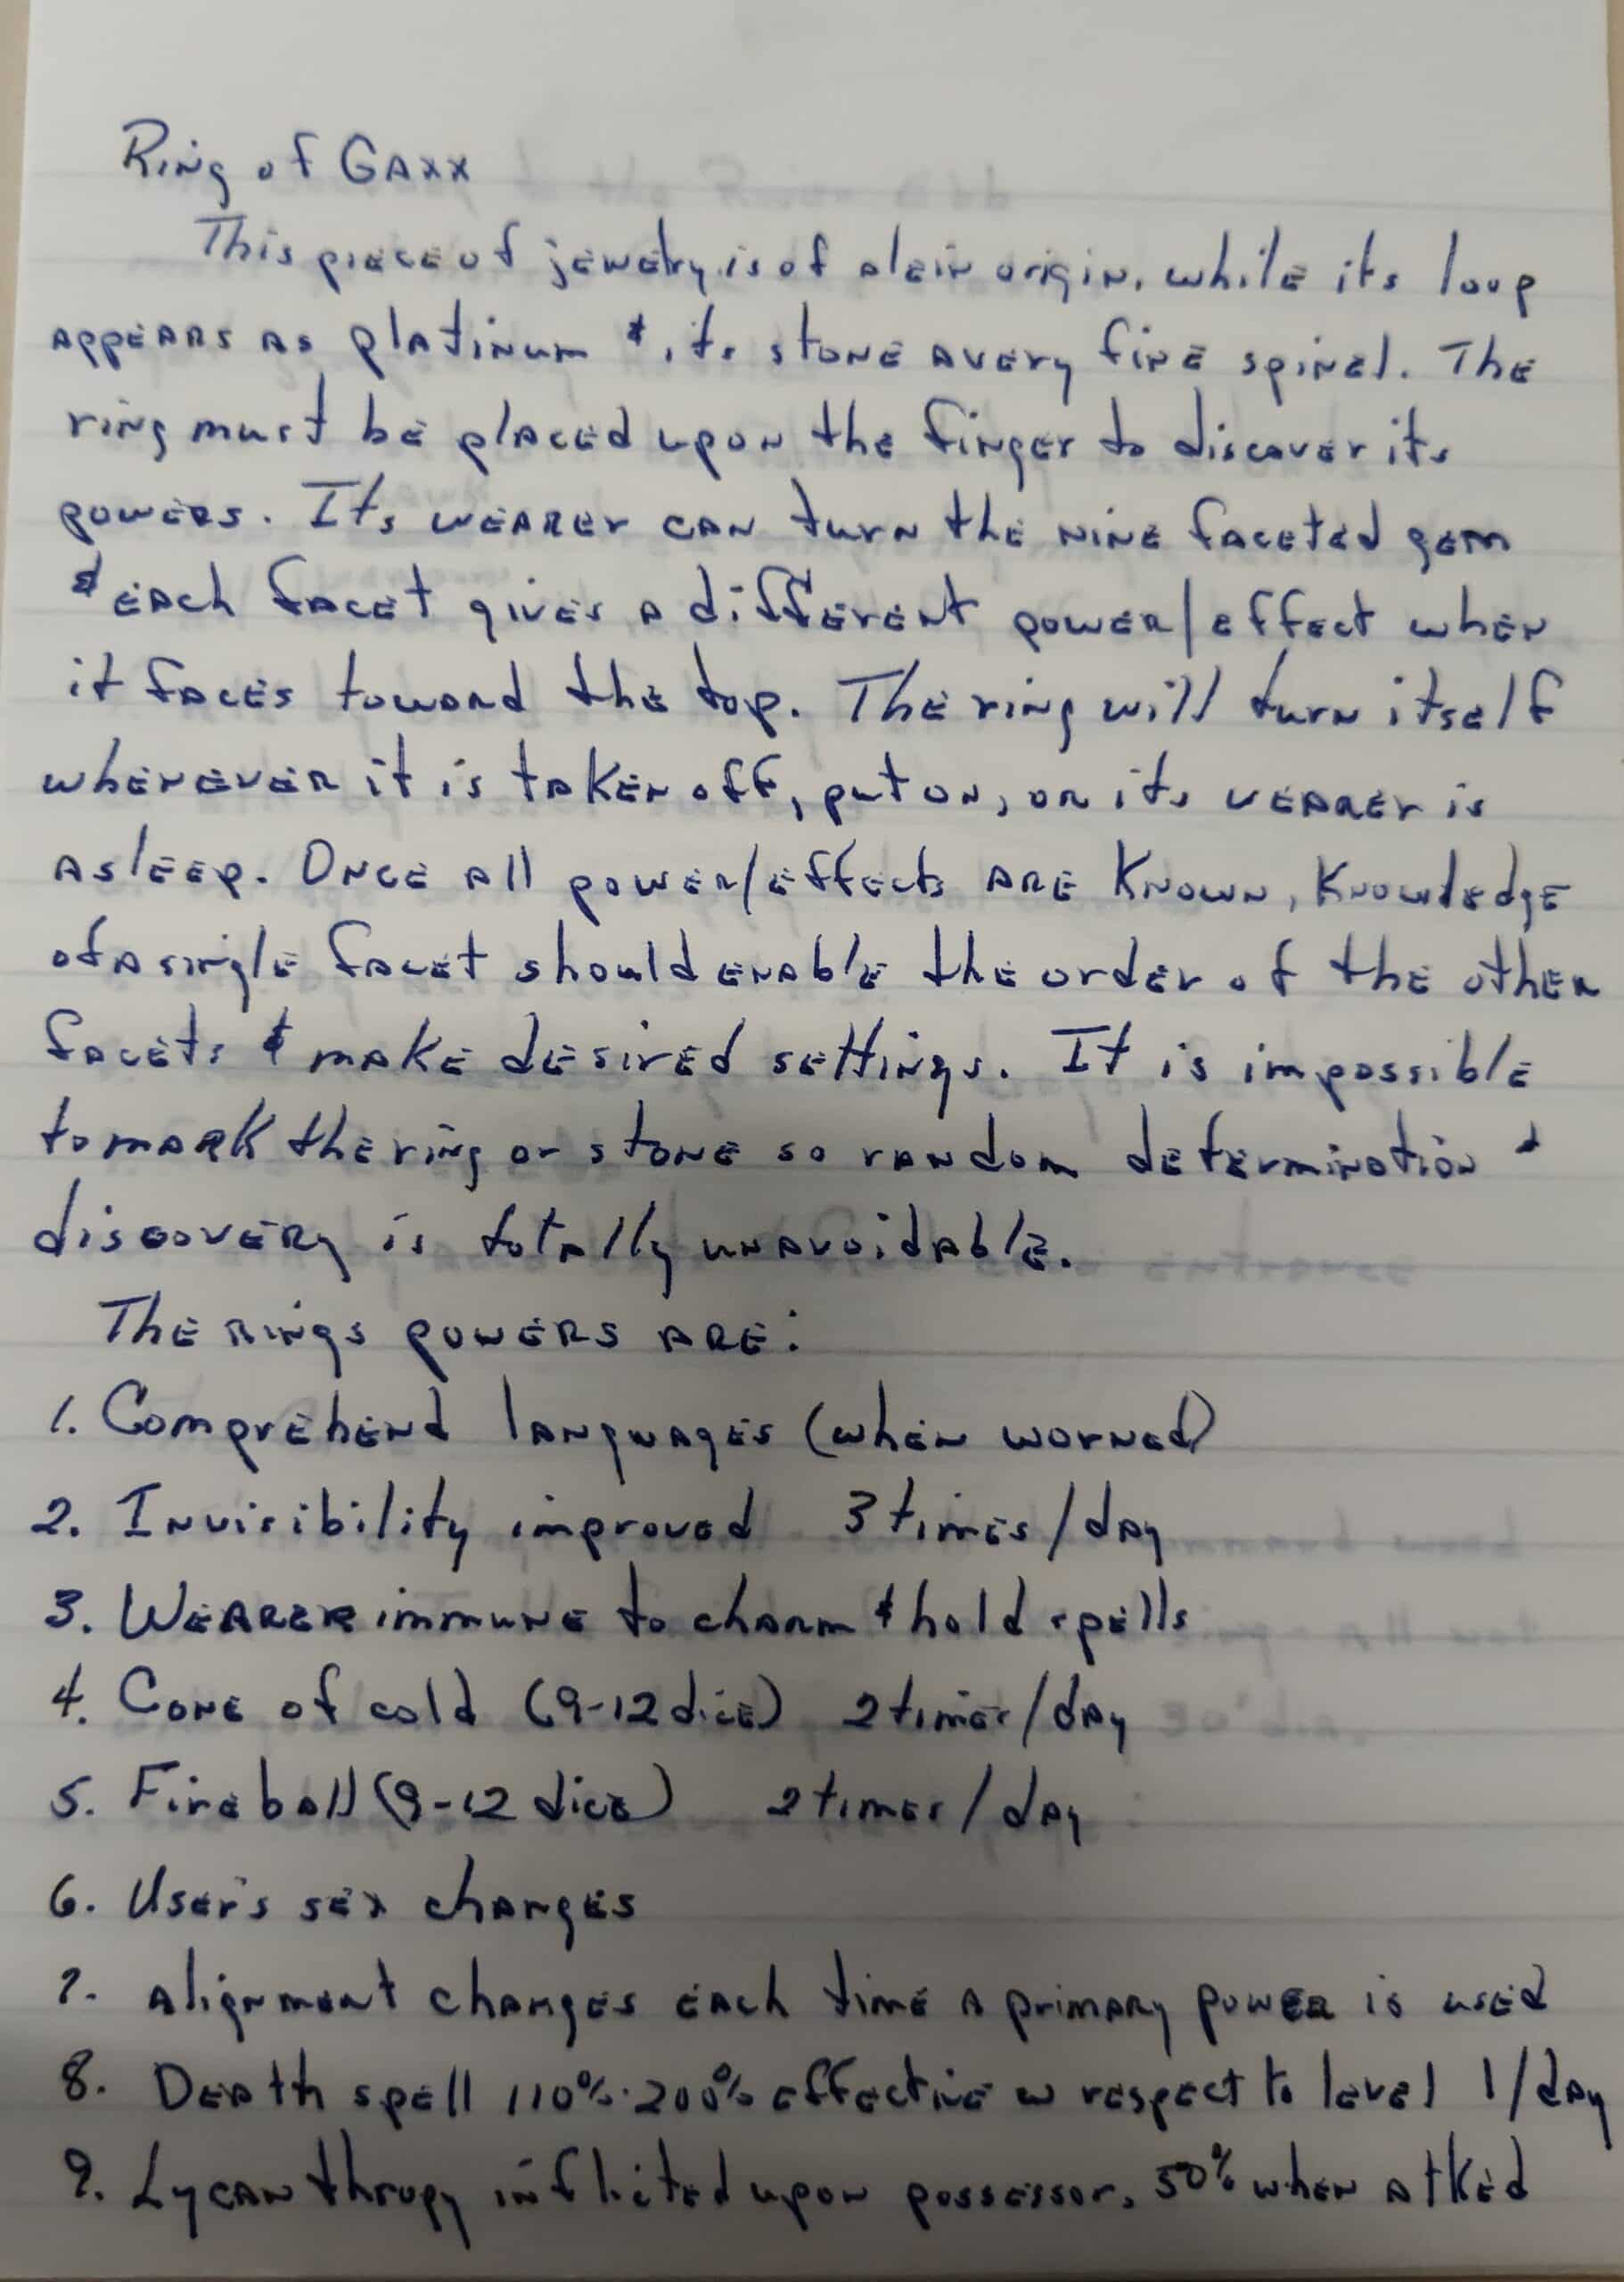 Ring of Gaxx
This piece of jewelry is of alein origin, while its loop
appears as platinum & its stone a very fine spinel. The
ring must be placed upon the finger to discover its
powers. Its wearer can turn the nine faceted gem
& each facet gives a different power/effect when
it faces toward the top. The ring will turn itself
whenever it is taken off, put on, or its wearer is
asleep. Once all power/effects are known, knowledge
of a single facet should enable the order of the other
facets & make desired settings. It is impossible
to mark the ring or stone so random determination &
discovery is totally unavoidable.
The rings powers are:
1. Comprehend languages (when worned)
2. Invisibility improved 3 times/day
3. Wearer immune to charm & hold spells
4. Cone of cold (9-12 dice) 2 times/day
5. Fireball (9-12 dice) 2 times/day
6. User's sex changes
7. Alignment changes each time a primary power is used
8. Death spell 110%-200% effective w respect to level 1/day
9. Lycanthropy inflicted upon possessor, 50% when atked